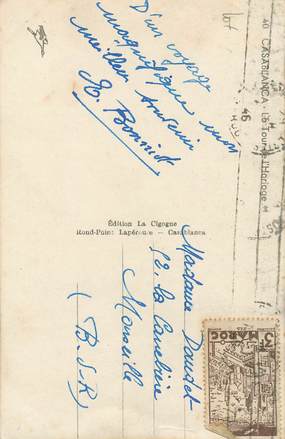 40 CASABLANCA. La Tour de l'Horloge
46
D'un voyage
magnifique mon
meilleur souvenir
E. Bonnict
Édition La Cigogne
Rond-Point Lapérouse - Casablanca
Madame Doudet
52. la Canebière
Marseille
(B.d.R)
3F
MAROC